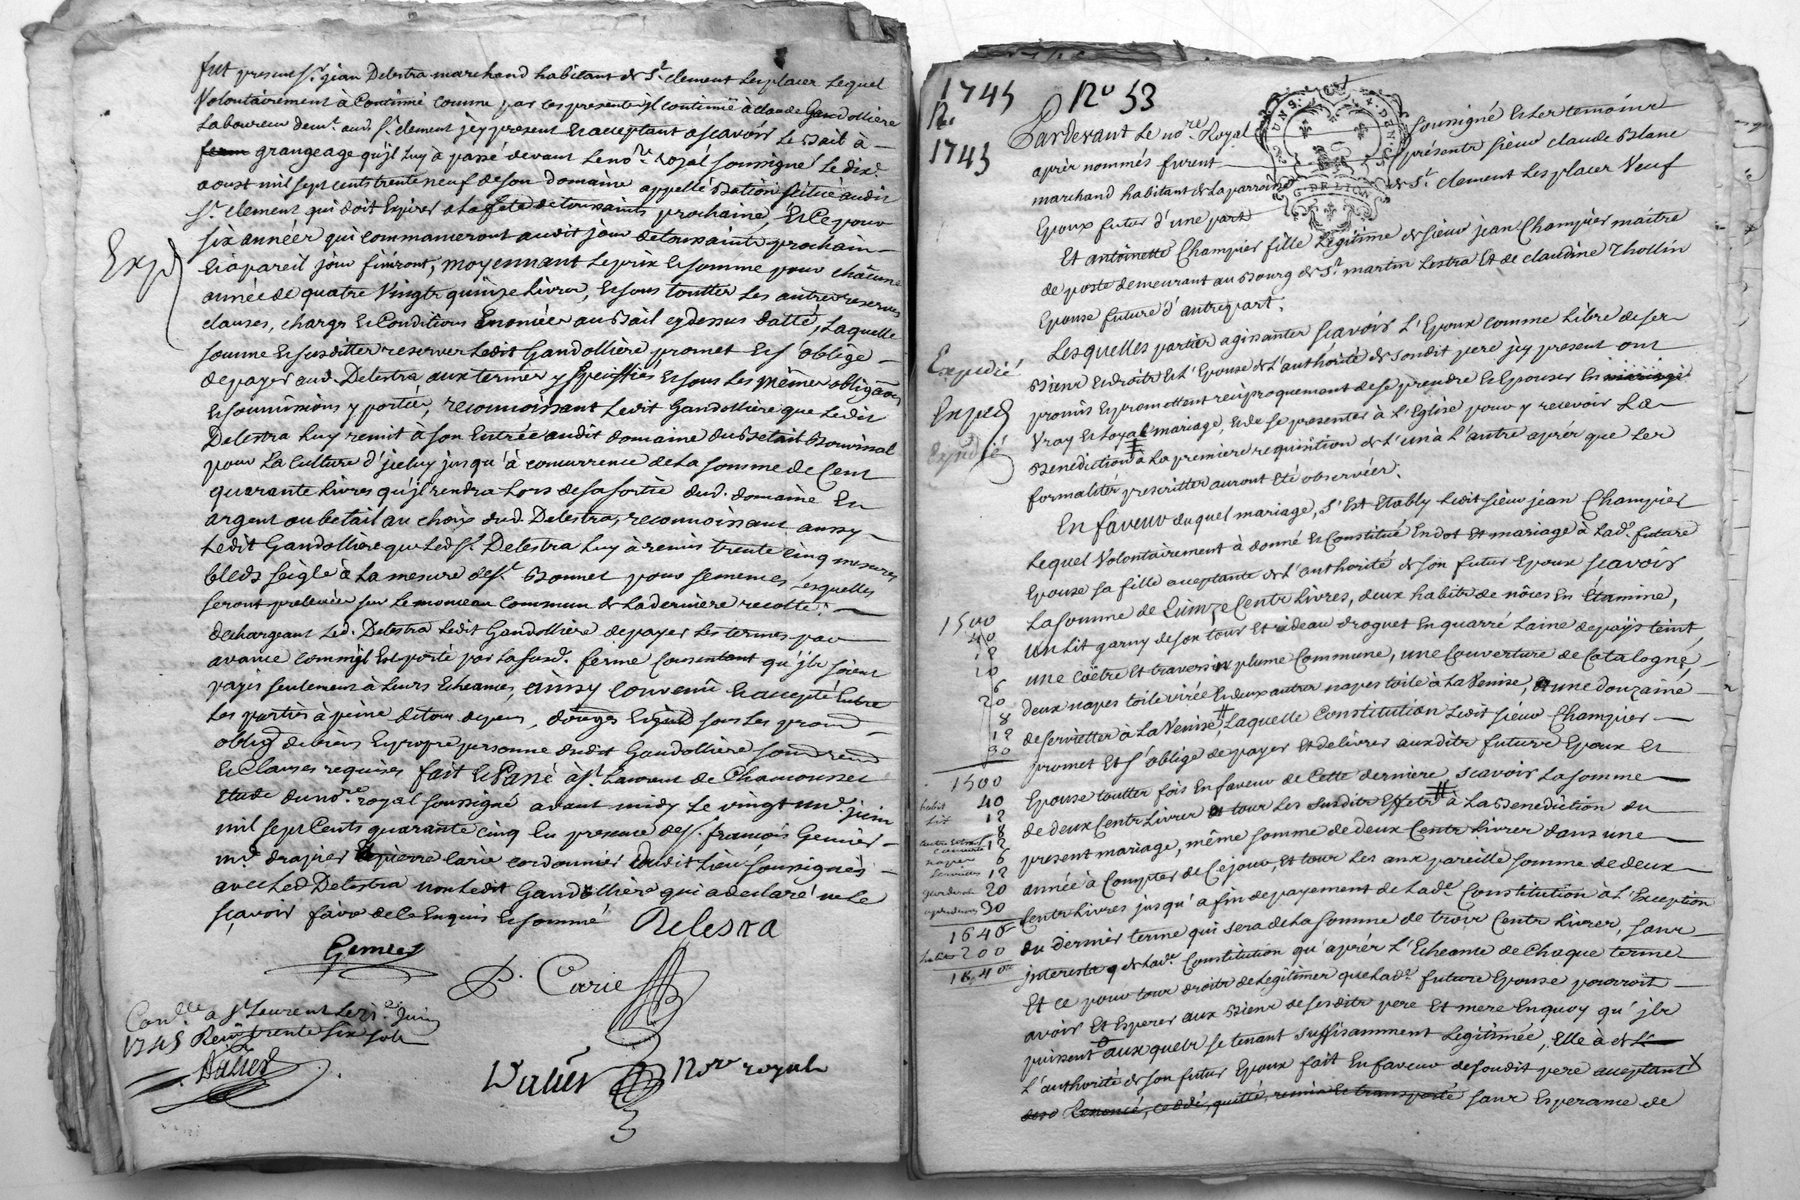 fut present Sr. jean Delestra marchand habitant de St. clement les places Lequel
Volontairement à Continué comme par ces presente il continüe à claude Gandollière
Laboureur demt. aud. St. clement jcy present et acceptant ascavoir Le Bail à
grangeage qu'jl Luy à passé devant Le nore. royal soussigné Le dixe.
aoust mil sept cents trente neuf de son domaine appellé Bation scitüe audit
St. clement qui doit Expirer a La fete de toussaints prochaine, et Ce pour
six années qui commanceront audit jour de toussaints prochain
et à pareil jour finiront, moyennant Le prix et somme pour chacune
année de quatre Vingts quinze Livres, et sous touttes Les autres reserves
clauses, charges et Conditions Enoncées au Bail cy dessus datté, Laquelle
somme et susdittes reserves Ledit Gandollière promet et s'oblige
de payer aud. Delestra aux termes y specifiés et sous Les mêmes obligaons
et soumissions y portées, reconnoissant Ledit Gandollière que Ledit
Delestra Luy remit à son Entrée audit domaine du Betail
pour La Culture d'jceluy jusqu'à concurrence de La somme de Cent
quarante Livres qu'jl rendra Lors de sa sortie dud. domaine En
argent ou betail au choix dud. Delestra, reconnoissant aussy
Ledit Gandollière que Led. Sr. Delestra Luy à remis trente cinq mesures
bleds seigle à La mesure de St. Bonnet pour semences Lesquelles
seront prelevées sur Le monceau commun de La derniere recolte;
dechargeant Led. Delestra Ledit Gandollière de payer Les termes par
avance comm'jl Est porté par La susd. ferme Consentant qu'jls soient
payés seulement à Leurs Echeances, ainsy Convenû et accepté Entre
Les parties à peine de tous depens,
oblig de biens Et propre personne dudit Gandollière
et Clauses requises fait et Passé à St. Laurent de Chamousset
Etude du nore. royal soussigné avant midy Le vingt une. juin
mil sept Cents quarante cinq En presence de Sr. françois Gemier
me. drapier et pierre Carie cordonnier dudit Lieu soussignés
avec Led. Delestra non Ledit Gandollière qui a declaré ne Le
sçavoir faire de Ce Enquis et sommé
Exp
Delestra
Gemier
P. Carie
Conlle. a St. Laurent Le 21e. Juin
1745 Reçu trente six sols
Nore royal
1745
No 53
R.
1745
Pardevant Le nore. Royal soussigné et Les temoins
après nommés furent présents sieur claude Blanc
marchand habitant de La parroisse de St. clement Les places Veuf
Epoux futur d'une part
Et antoinette Champier fille Légitime de sieur jean Champier maitre
de poste demeurant au Bourg de St. martin Lestra Et de claudine Thollin
Epouse future d'autre part.
Lesquelles parties agissantes sçavoir L'Epoux comme Libre de ses
Biens et droits et L'Epouse de L'authorité de sondit pere jcy present ont
promis et promettent réciproquement de se prendre et Epouser En mariage
Vray et Loyal mariage, et de se presenter à L'Eglise pour y recevoir La
Benediction à La premiere requisition de L'un à L'autre après que Les
formalités prescrittes auront Eté observées.
En faveur duquel mariage, s'Est Etably Ledit sieur jean Champier
Lequel Volontairement à donné et Constitué En dot Et mariage à Lade. future
Epouse sa fille acceptante de L'authorité de son futur Epoux sçavoir
La somme de Quinze Cents Livres, deux habits de nôces En Etamine,
un Lit garny de son tour Et rideau droguet En quarré Laine de pays teint,
une Coëtre et traversin plume Commune, une Couverture de Catalogne,
deux napes toile virée et deux autres napes toile à La Venise, et une douzaine
de serviettes à La Venise, # Laquelle Constitution Ledit sieur Champier
promet Et s'oblige de payer Et delivrer auxdits future Epoux et
Epouse touttes fois En faveur de Cette derniere, scavoir La somme
de deux Cents Livres et tous Les susdits Effets # à La Benediction du
present mariage, même somme de deux Cents Livres dans une
année à Compter de Ce jour, Et tous Les ans pareille somme de deux
Cents Livres jusqu'à fin de payement de Lade. Constitution à L'Exception
du dernier terme qui sera de La somme de trois Cents Livres, sans
jnterests de Lade. Constitution qu'après L'Echeance de Chaque terme
Et ce pour tous droits de Légitimes que Lade. future Epouse pourroit
avoir Et Esperer aux Biens de sesdits pere Et mere En quoy qu'jls
puissent auxquels se tenant suffisamment Legitimée, Elle à de L'
L'authorité de son futur Epoux fait En faveur de sondit pere acceptant X
renoncé, ceddé, quitté, remis Et transporté sans Esperance de
Expedié
Exped
Expedié
1500
40
12
10
6
20
8
12
30
1500
habit 40
Lit 12
8
12
napes 6
serviettes 12
20
30
1646
200